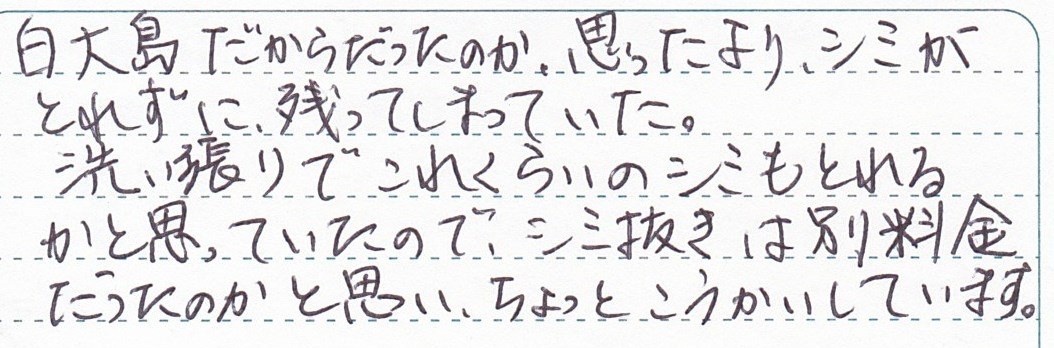 白大島だからだったのか、思ったより、シミが
とれずに、残ってしまっていた。
洗い張りでこれくらいのシミもとれる
かと思っていたので、シミ抜きは別料金
だったのかと思い、ちょっとこうかいしています。